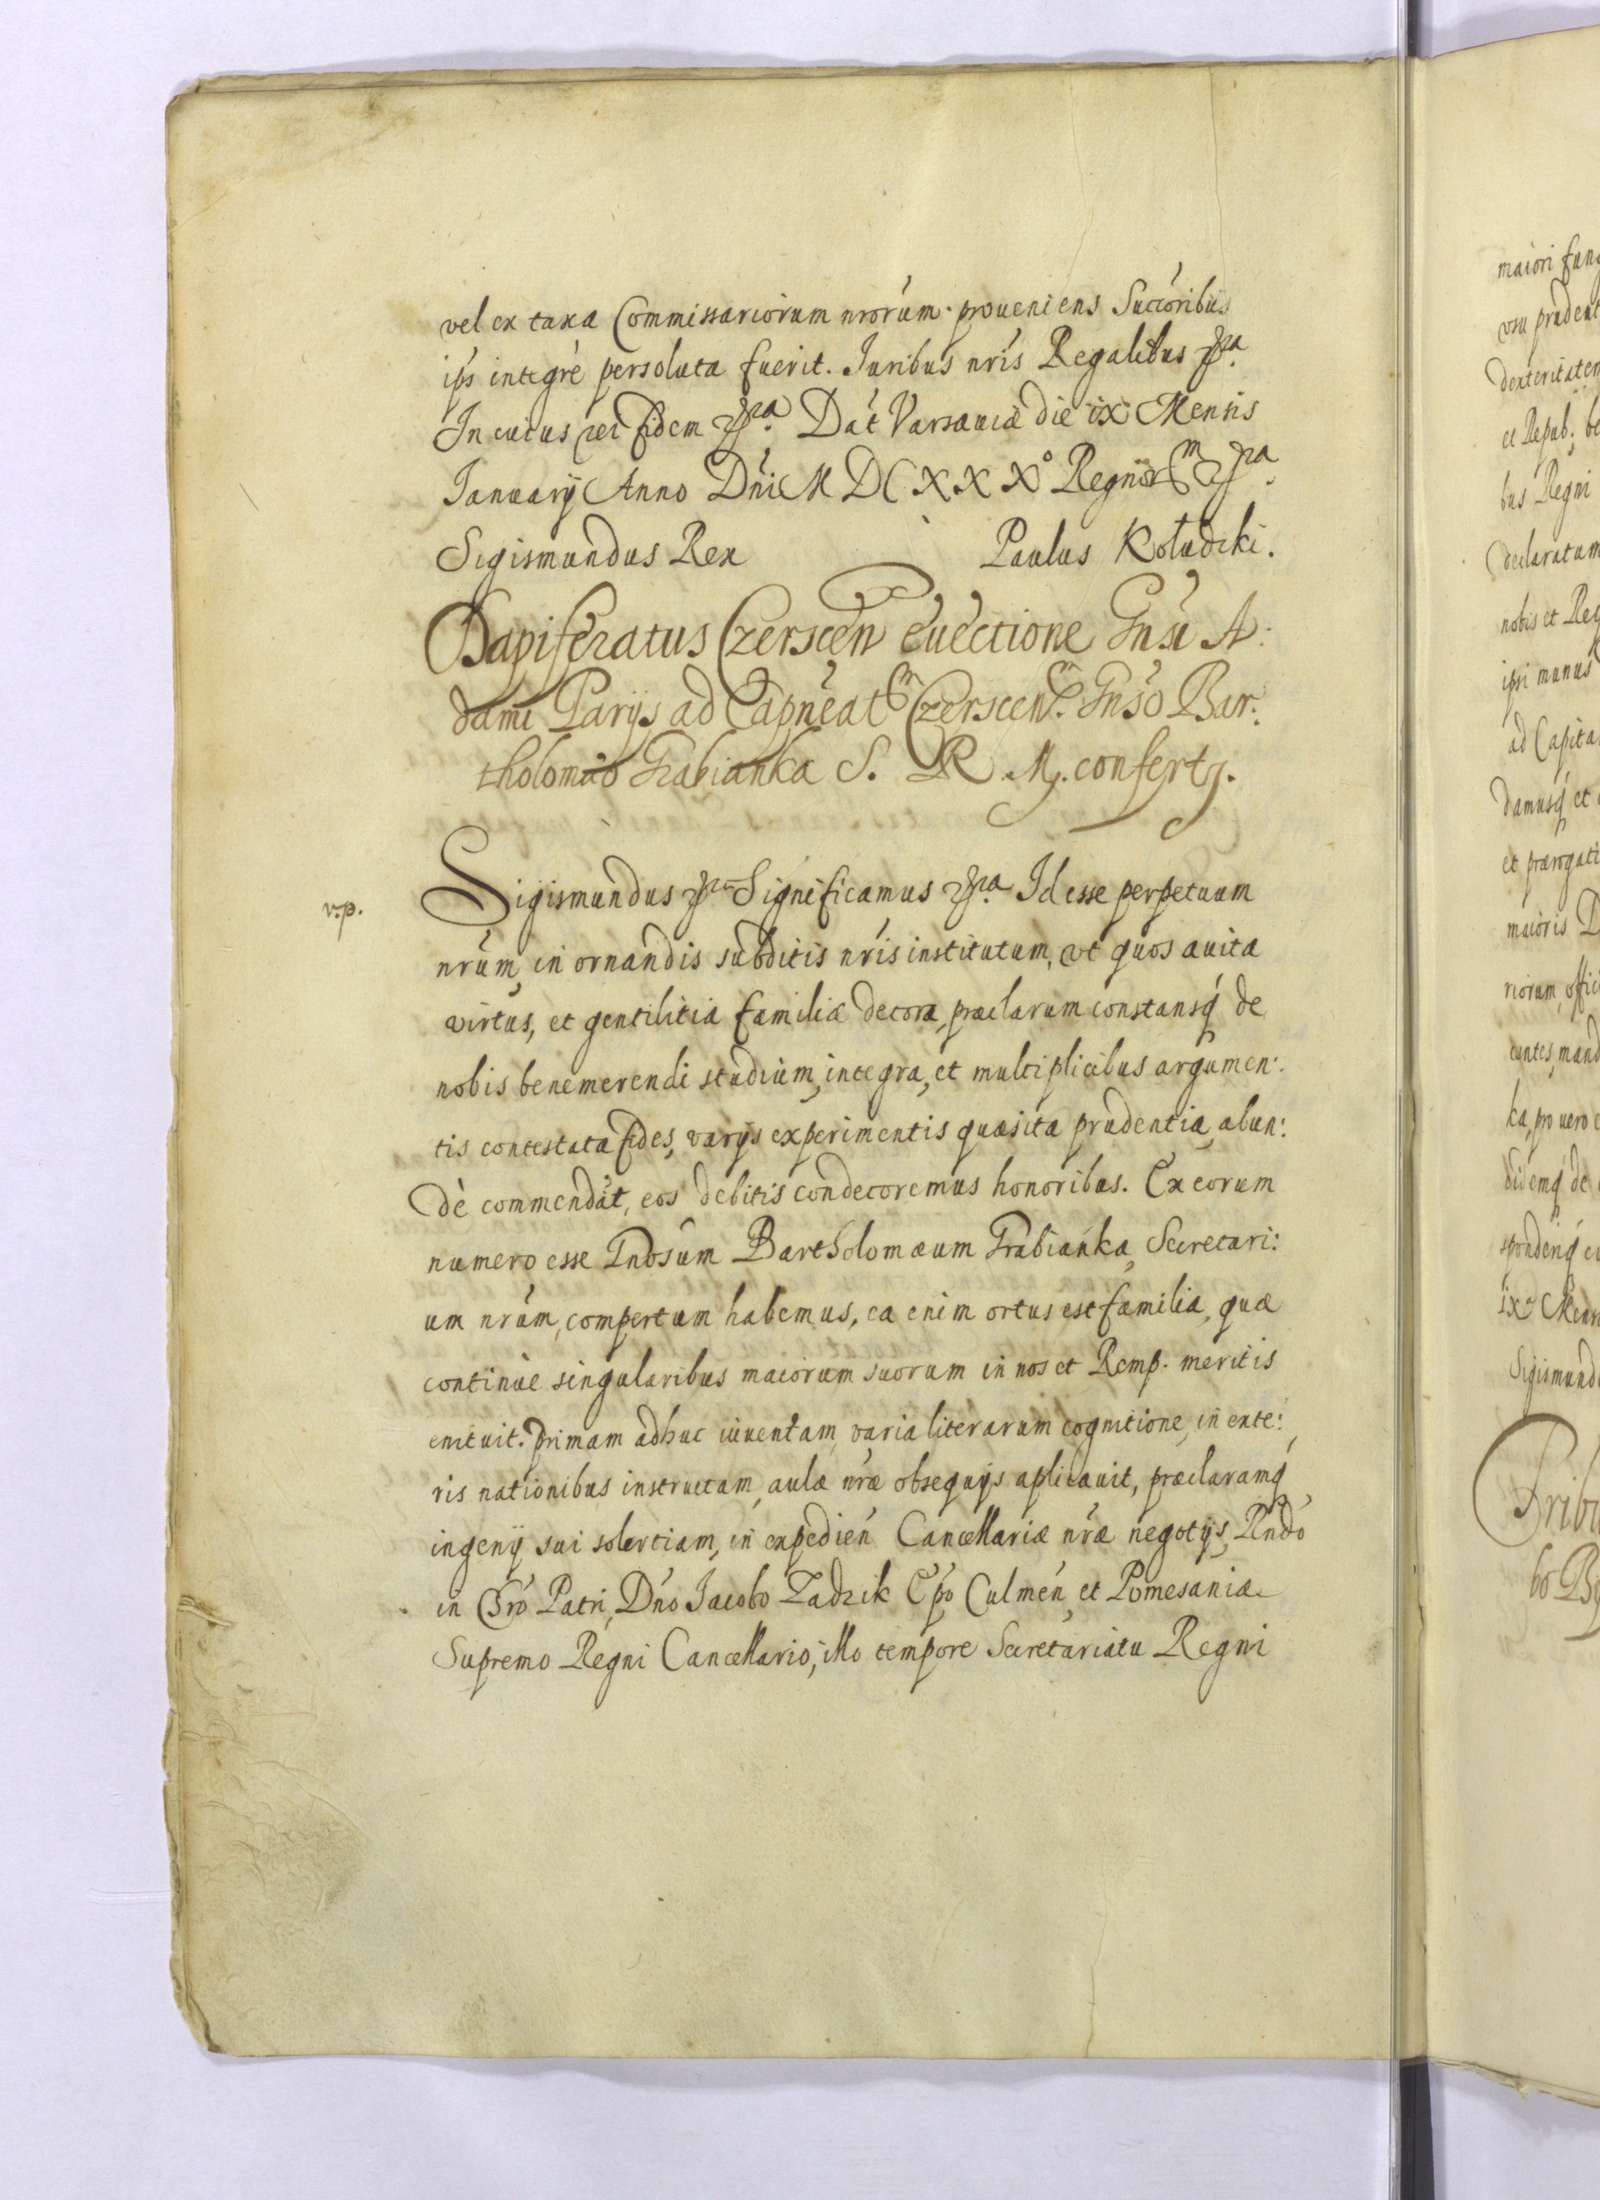 vel ex taxa Commissariorum nrórum proueniens Succóribus
ips integrè persoluta fuerit. Iuribus nrís Regalibus
In cuius rei fidem Dat Varsauiæ die ix Mensis
Ianuarij Anno Dńi M D C X X X° Regnor
Sigismundus Rex Paulus Kołudzki.
Dapiferatus Czerscen euectione Gńsi A:
dami Parijs ad Capńeat Czerscen. Gńso Bar:
tholomæo Grabianka S. R. M. confert.
v.p.
Sigismundus Significamus Id esse perpetuum
nrúm, in ornandis subditis nrís institutum, vt quos auita
virtus, et gentilitia familiæ decora, præclarum constansq́ de
nobis benemerendi studium, integra, et multiplicibus argumen:
tis contestata fides, varijs experimentis quæsita prudentia, abun:
dè commendat, eos debitis condecoremus honoribus. Ex eorum
numero esse Gnósum Bartholomæum Grabianka, Secretari:
um nrúm, compertum habemus, ea enim ortus est familia, quæ
continùe singularibus maiorum suorum in nos et Remp. meritis
enituit. primam adhuc iuuentam, varia literarum cognitione, in exte:
ris nationibus instructam, aulæ nræ obsequijs aplicauit, præclaramq́
ingenij sui solertiam, in expedień Cancellariæ nræ negotijs, Rńdo
in Chró Patri, Dńo Iacobo Zadzik Epó Culmeń et Pomesaniæ
Supremo Regni Cancellario, illo tempore Secretariatu Regni
maiori fung
vsu prudent
dexteritatem
et Repub: be
bus Regni
declaratum
nobis et Reg
ipsi munus
ad Capita
damusq́ et
et prærogati
maioris D
riorum, offici
euntes, mand
ka, pro uero
bidemq́ de
spondenq́ ei
ix Mens
Sigismund
Tribu
bo By